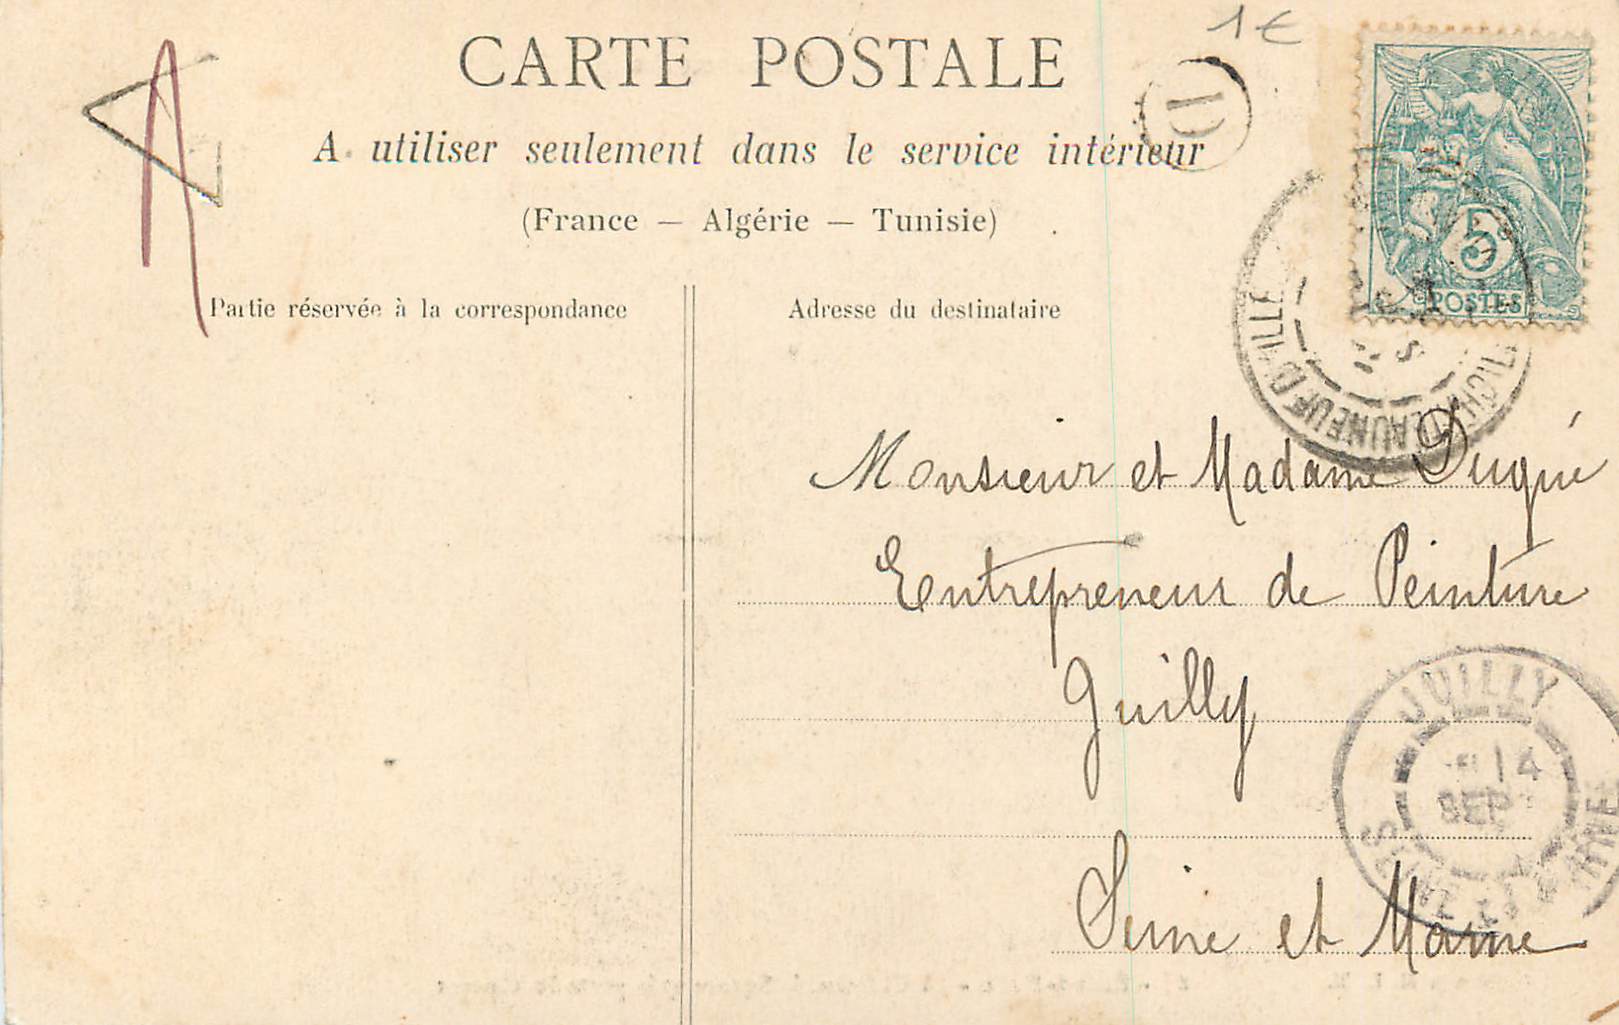 1€
CARTE POSTALE
D
A utiliser seulement dans le service intérieur
(France — Algérie — Tunisie)
5c
POSTES
Partie réservée à la correspondance
Adresse du destinataire
CHATEAUNEUF D'ILLE
Monsieur et Madame Dugué
Entrepreneur de Peinture
Juilly
JUILLY
14
SEPT
SEINE ET MARNE
Seine et Marne